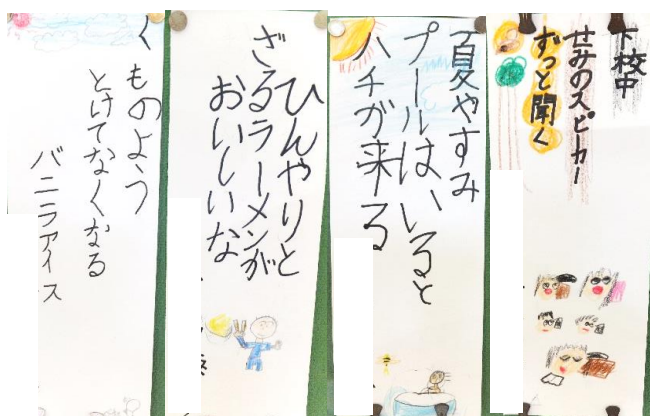 下校中
せみのスピーカー
ずっと聞く
夏やすみ
プールはいると
ハチが来る
ひんやりと
ざるラーメンが
おいしいな
くものよう
とけてなくなる
バニラアイス